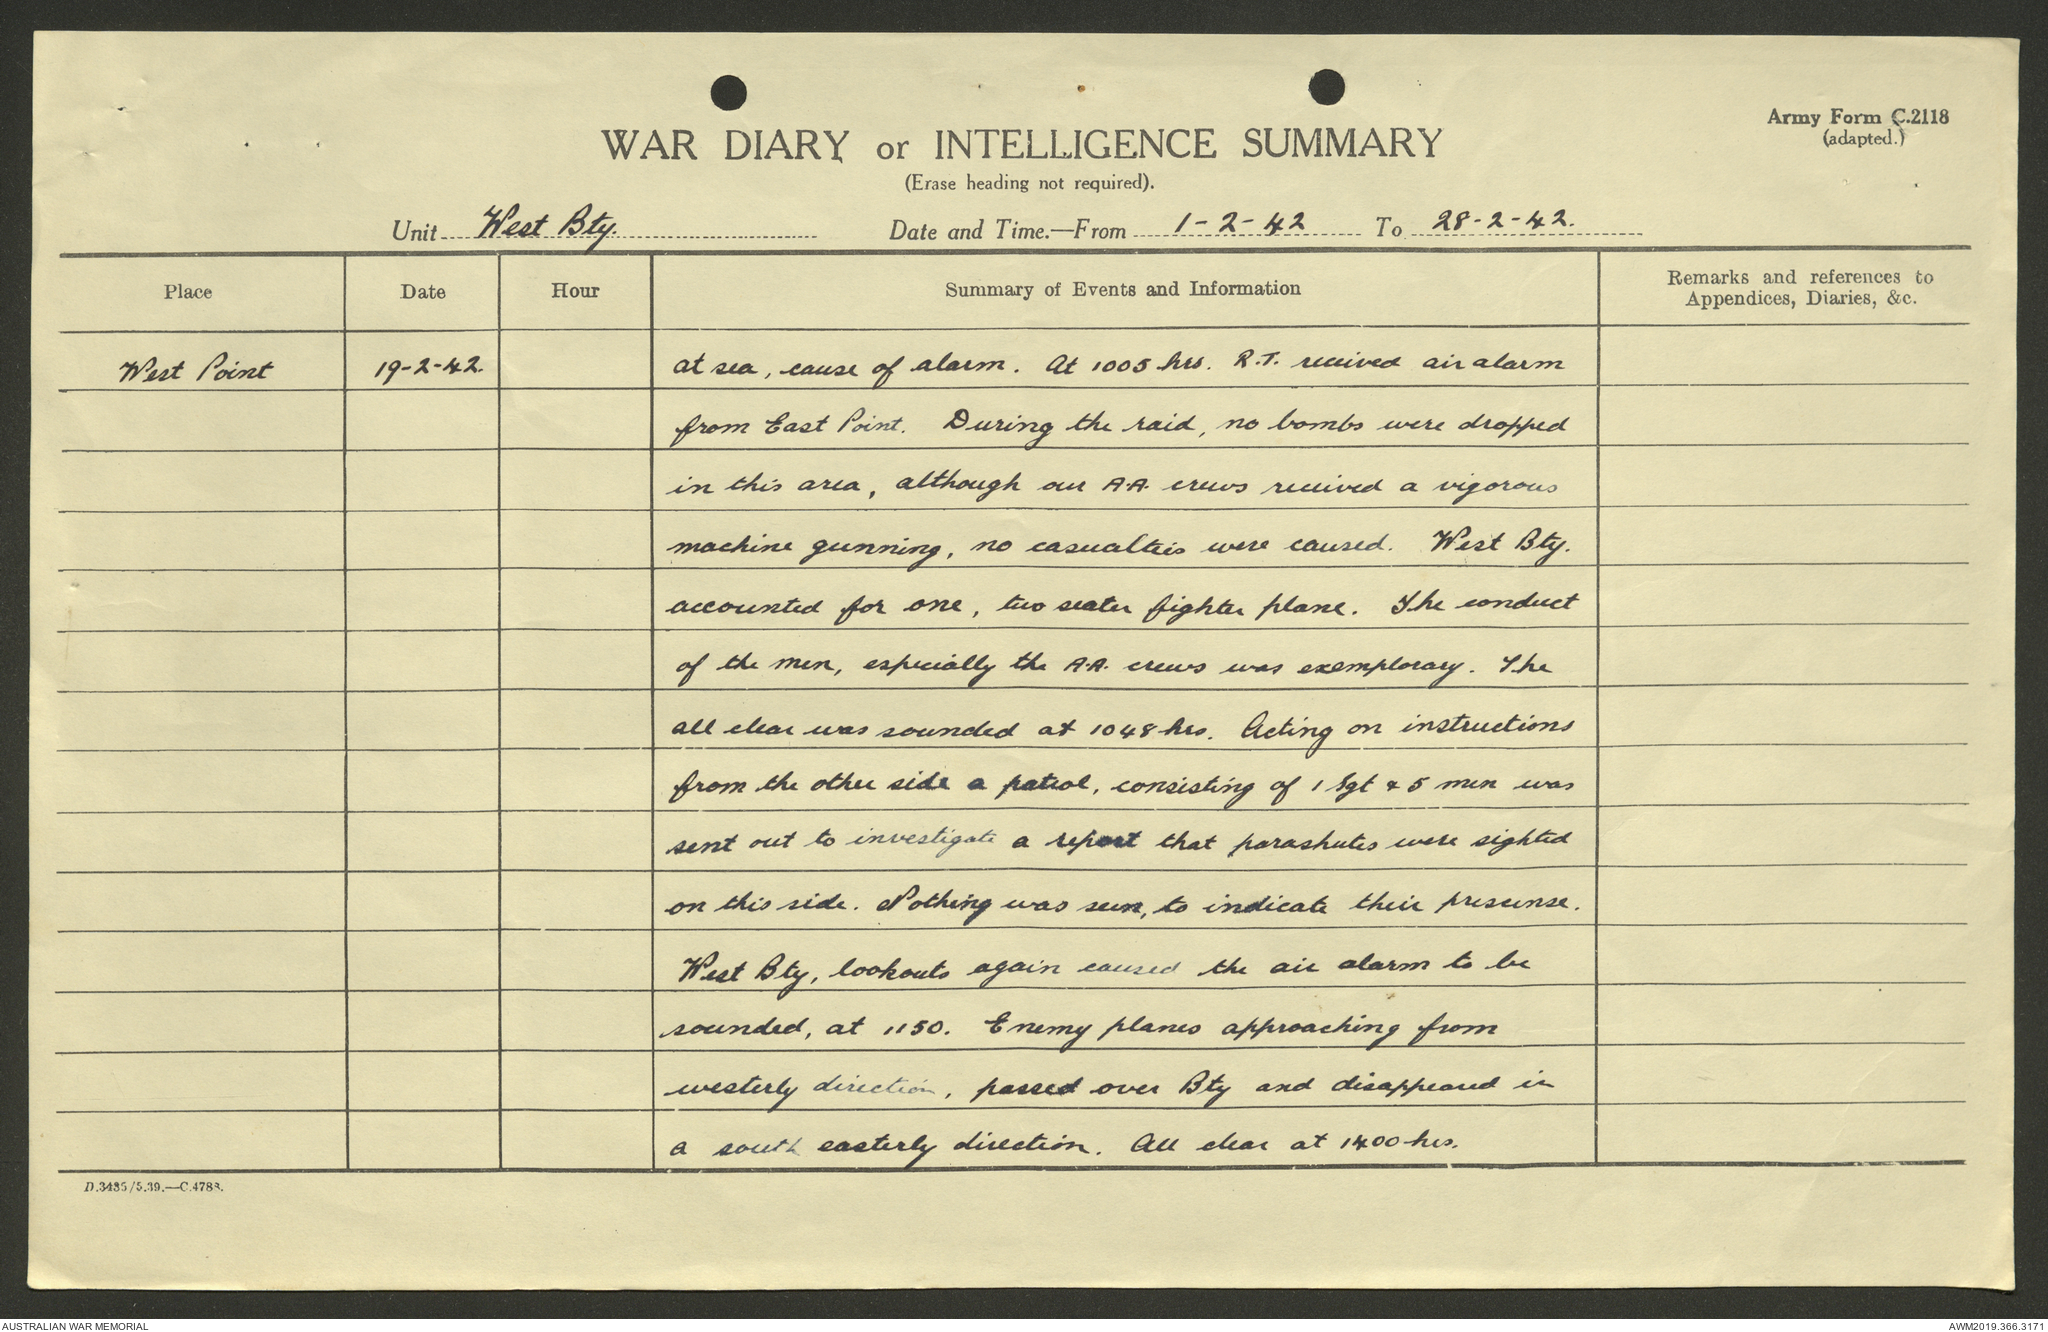 Army Form C.2118
(adapted.)
WAR DIARY or INTELLIGENCE SUMMARY
(Erase heading not required).
Unit West Bty. Date and Time.—From 1-2-42 To 28-2-42.
Place Date Hour Summary of Events and Information Remarks and references to
Appendices, Diaries, &c.
West Point 19-2-42. at sea, cause of alarm. At 1005 hrs. R.T. received air alarm
from East Point. During the raid, no bombs were dropped
in this area, although our A.A. crews received a vigorous
machine gunning, no casualties were caused. West Bty.
accounted for one, two seater fighter plane. The conduct
of the men, especially the A.A. crews was exemplorary. The
all clear was sounded at 1048 hrs. Acting on instructions
from the other side a patrol, consisting of 1 Sgt & 5 men was
sent out to investigate a report that parashutes were sighted
on this side. Nothing was seen, to indicate their prescense.
West Bty, lookouts again caused the air alarm to be
sounded, at 1150. Enemy planes approaching from
westerly direction, passed over Bty and disappeared in
a south easterly direction. All clear at 1400 hrs.
D.3435/5.39.—C.4788.
AUSTRALIAN WAR MEMORIAL AWM2019.366.3171